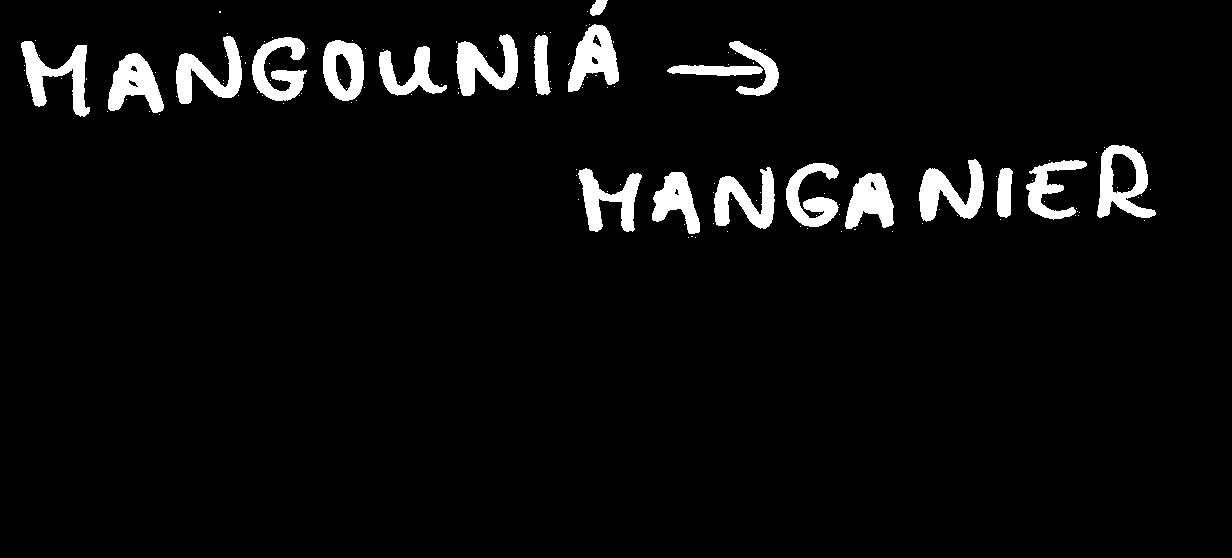 MANGOUNIÁ →
MANGANIER